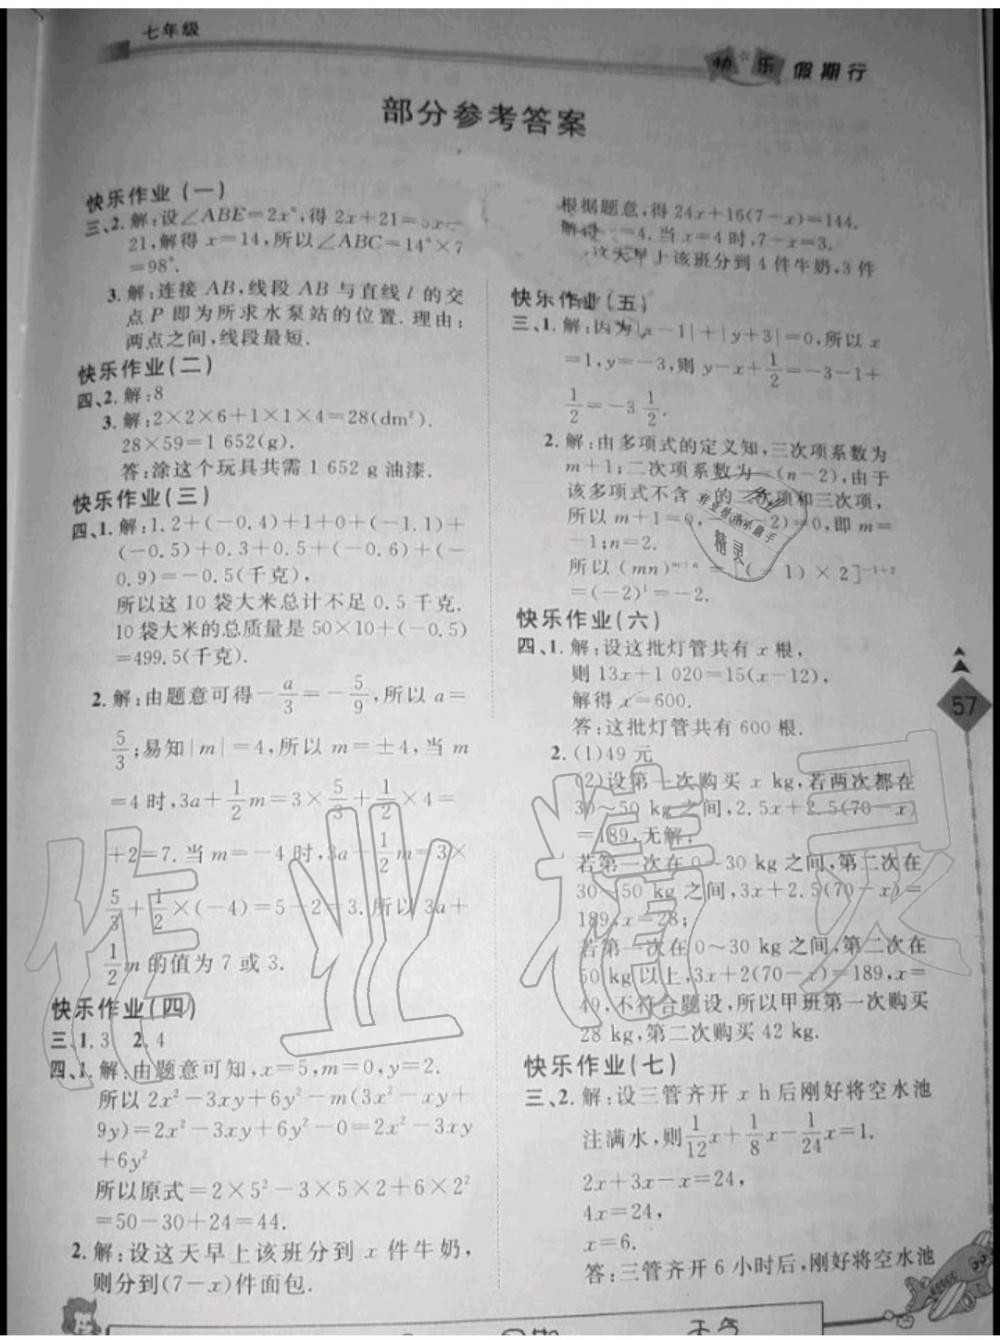 七年级
快乐假期行
部分参考答案
快乐作业(一)
三、2. 解:设∠ABE=2x°,得 2x+21=5x-
21,解得 x=14,所以∠ABC=14°×7
=98°.
3. 解:连接 AB,线段 AB 与直线 l 的交
点 P 即为所求水泵站的位置. 理由:
两点之间,线段最短.
快乐作业(二)
四、2. 解:8
3. 解:2×2×6+1×1×4=28(dm²).
28×59=1 652(g).
答:涂这个玩具共需 1 652 g 油漆.
快乐作业(三)
四、1. 解:1.2+(-0.4)+1+0+(-1.1)+
(-0.5)+0.3+0.5+(-0.6)+(-
0.9)=-0.5(千克),
所以这 10 袋大米总计不足 0.5 千克.
10 袋大米的总质量是 50×10+(-0.5)
=499.5(千克).
2. 解:由题意可得-a/3=-5/9,所以 a=
5/3;易知|m|=4,所以 m=±4,当 m
=4 时,3a+1/2m=3×5/3+1/2×4=
+2=7. 当 m=-4 时,3a+1/2m=3×
5/3+1/2×(-4)=5-2=3. 所以 3a+
1/2m 的值为 7 或 3.
快乐作业(四)
三、1. 3 2. 4
四、1. 解:由题意可知,x=5,m=0,y=2.
所以 2x²-3xy+6y²-m(3x²-xy+
9y)=2x²-3xy+6y²-0=2x²-3xy
+6y²
所以原式=2×5²-3×5×2+6×2²
=50-30+24=44.
2. 解:设这天早上该班分到 x 件牛奶,
则分到(7-x)件面包.
根据题意,得 24x+16(7-x)=144.
解得 =4. 当 x=4 时,7-x=3.
这天早上该班分到 4 件牛奶,3 件
快乐作业(五)
三、1. 解:因为|x-1|+|y+3|=0,所以 x
=1,y=-3,则 y-x+1/2=-3-1+
1/2=-3 1/2.
2. 解:由多项式的定义知,三次项系数为
m+1;二次项系数为-(n-2),由于
该多项式不含 的二次项和三次项,
所以 m+1=0, -2)=0,即 m=
-1;n=2.
所以 (mn)^{m+n}=[(-1)×2]^{-1+2}
=(-2)¹=-2.
快乐作业(六)
四、1. 解:设这批灯管共有 x 根,
则 13x+1 020=15(x-12),
解得 x=600.
答:这批灯管共有 600 根.
2. (1)49 元
(2)设第一次购买 x kg,若两次都在
30~50 kg 之间,2.5x+2.5(70-x)
=189,无解;
若第一次在 0~30 kg 之间,第二次在
30~50 kg 之间,3x+2.5(70-x)=
189,x=28;
若第一次在 0~30 kg 之间,第二次在
50 kg 以上,3x+2(70-x)=189,x=
49,不符合题设,所以甲班第一次购买
28 kg,第二次购买 42 kg.
快乐作业(七)
三、2. 解:设三管齐开 x h 后刚好将空水池
注满水,则1/12x+1/8x-1/24x=1.
2x+3x-x=24,
4x=24,
x=6.
答:三管齐开 6 小时后,刚好将空水池
57
作业精灵
精灵